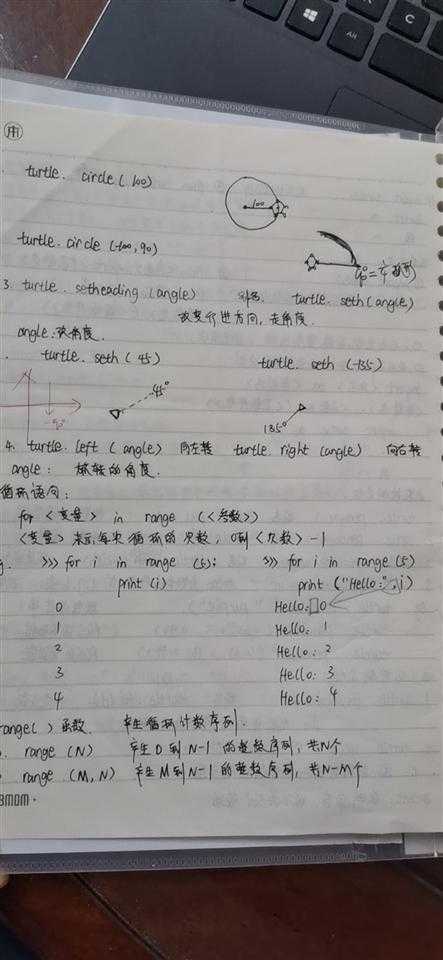 用
turtle. circle (100)
100
turtle. circle (-100, 90)
3. turtle. setheading (angle) 别名 turtle. seth (angle)
改变行进方向, 走角度.
angle:
turtle. seth (45) turtle. seth (-135)
-90°
45°
135°
4. turtle. left (angle) 向左转 turtle. right (angle) 向右转
angle: 旋转的角度.
循环语句:
for <变量> in range (<参数>)
<变量> 表示每次循环的次数, 0到<次数>-1
>>> for i in range (5): >>> for i in range (5)
print (i) print ("Hello:", i)
0 Hello: 0
1 Hello: 1
2 Hello: 2
3 Hello: 3
4 Hello: 4
range( ) 函数. 产生循环计数序列.
range (N) 产生0到N-1的整数序列, 共N个
range (M, N) 产生M到N-1的整数序列, 共N-M个